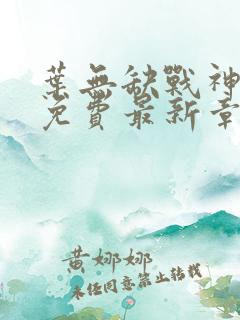 葉無缺戰神
免費最新章
黃娜娜
未經同意禁止轉載